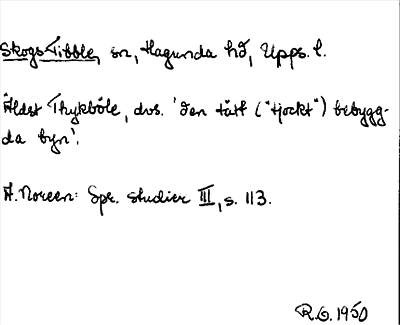 Skogs-Tibble, sn, Hagunda hd, Upps. l.
Äldst Thykböle, dvs. 'den tätt ("tjockt") bebygg-
da byn'.
A. Noreen: Spr. studier III, s. 113.
R.O. 1950